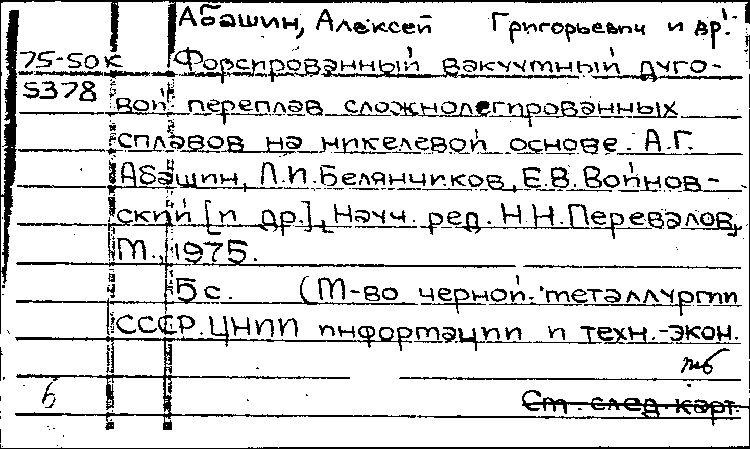 Абашин, Алексей Григорьевич и др.
75-50к Форсированный вакуумный дуго-
5378 вой переплав сложнолегированных
сплавов на никелевой основе. А.Г.
Абашин, Л.И.Белянчиков, Е.В.Войнов-
ский [и др.], Науч. ред. Н.Н.Перевалов,
М., 1975.
5 с. (М-во черной металлургии
СССР. ЦНИИ информации и техн.-экон.
б Ст. след. карт.